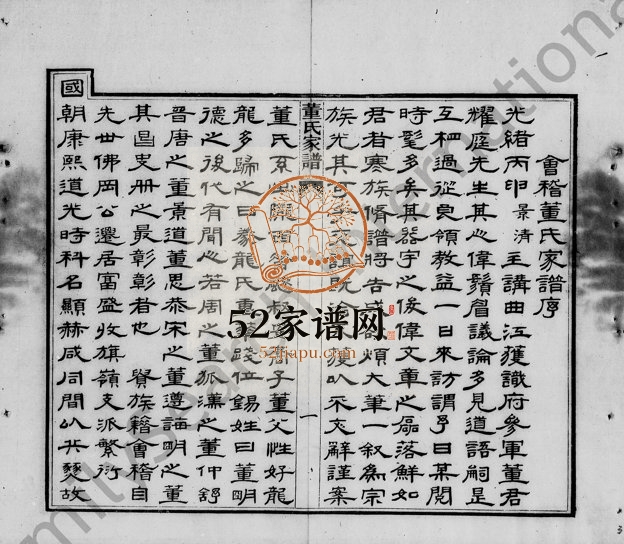 會稽董氏家譜序
光緒丙申景清主講曲江獲識府參軍董君
耀庭先生其人偉鬚眉議論多見道語嗣是
互相過從更領教益一日來訪謂予曰某閱
時髦多矣其器宇之俊偉文章之磊落鮮如
君者寒族脩譜將告成 煩大筆一敘為宗
族光其 獲以不文辭謹案
董氏系 子董父性好龍
龍多歸之曰豢龍氏 錫姓曰董明
德之後代有聞人若周之董狐漢之董仲舒
晉唐之董景道董思恭宋之董遵誨明之董
其昌史冊之最彰彰者也 貴族籍會稽自
先世佛岡公遷居富盛牧旗嶺支派繁衍
國
朝康熙道光時科名顯赫咸同間以兵燹故
董氏家譜
一
52家谱网
52jiapu.com